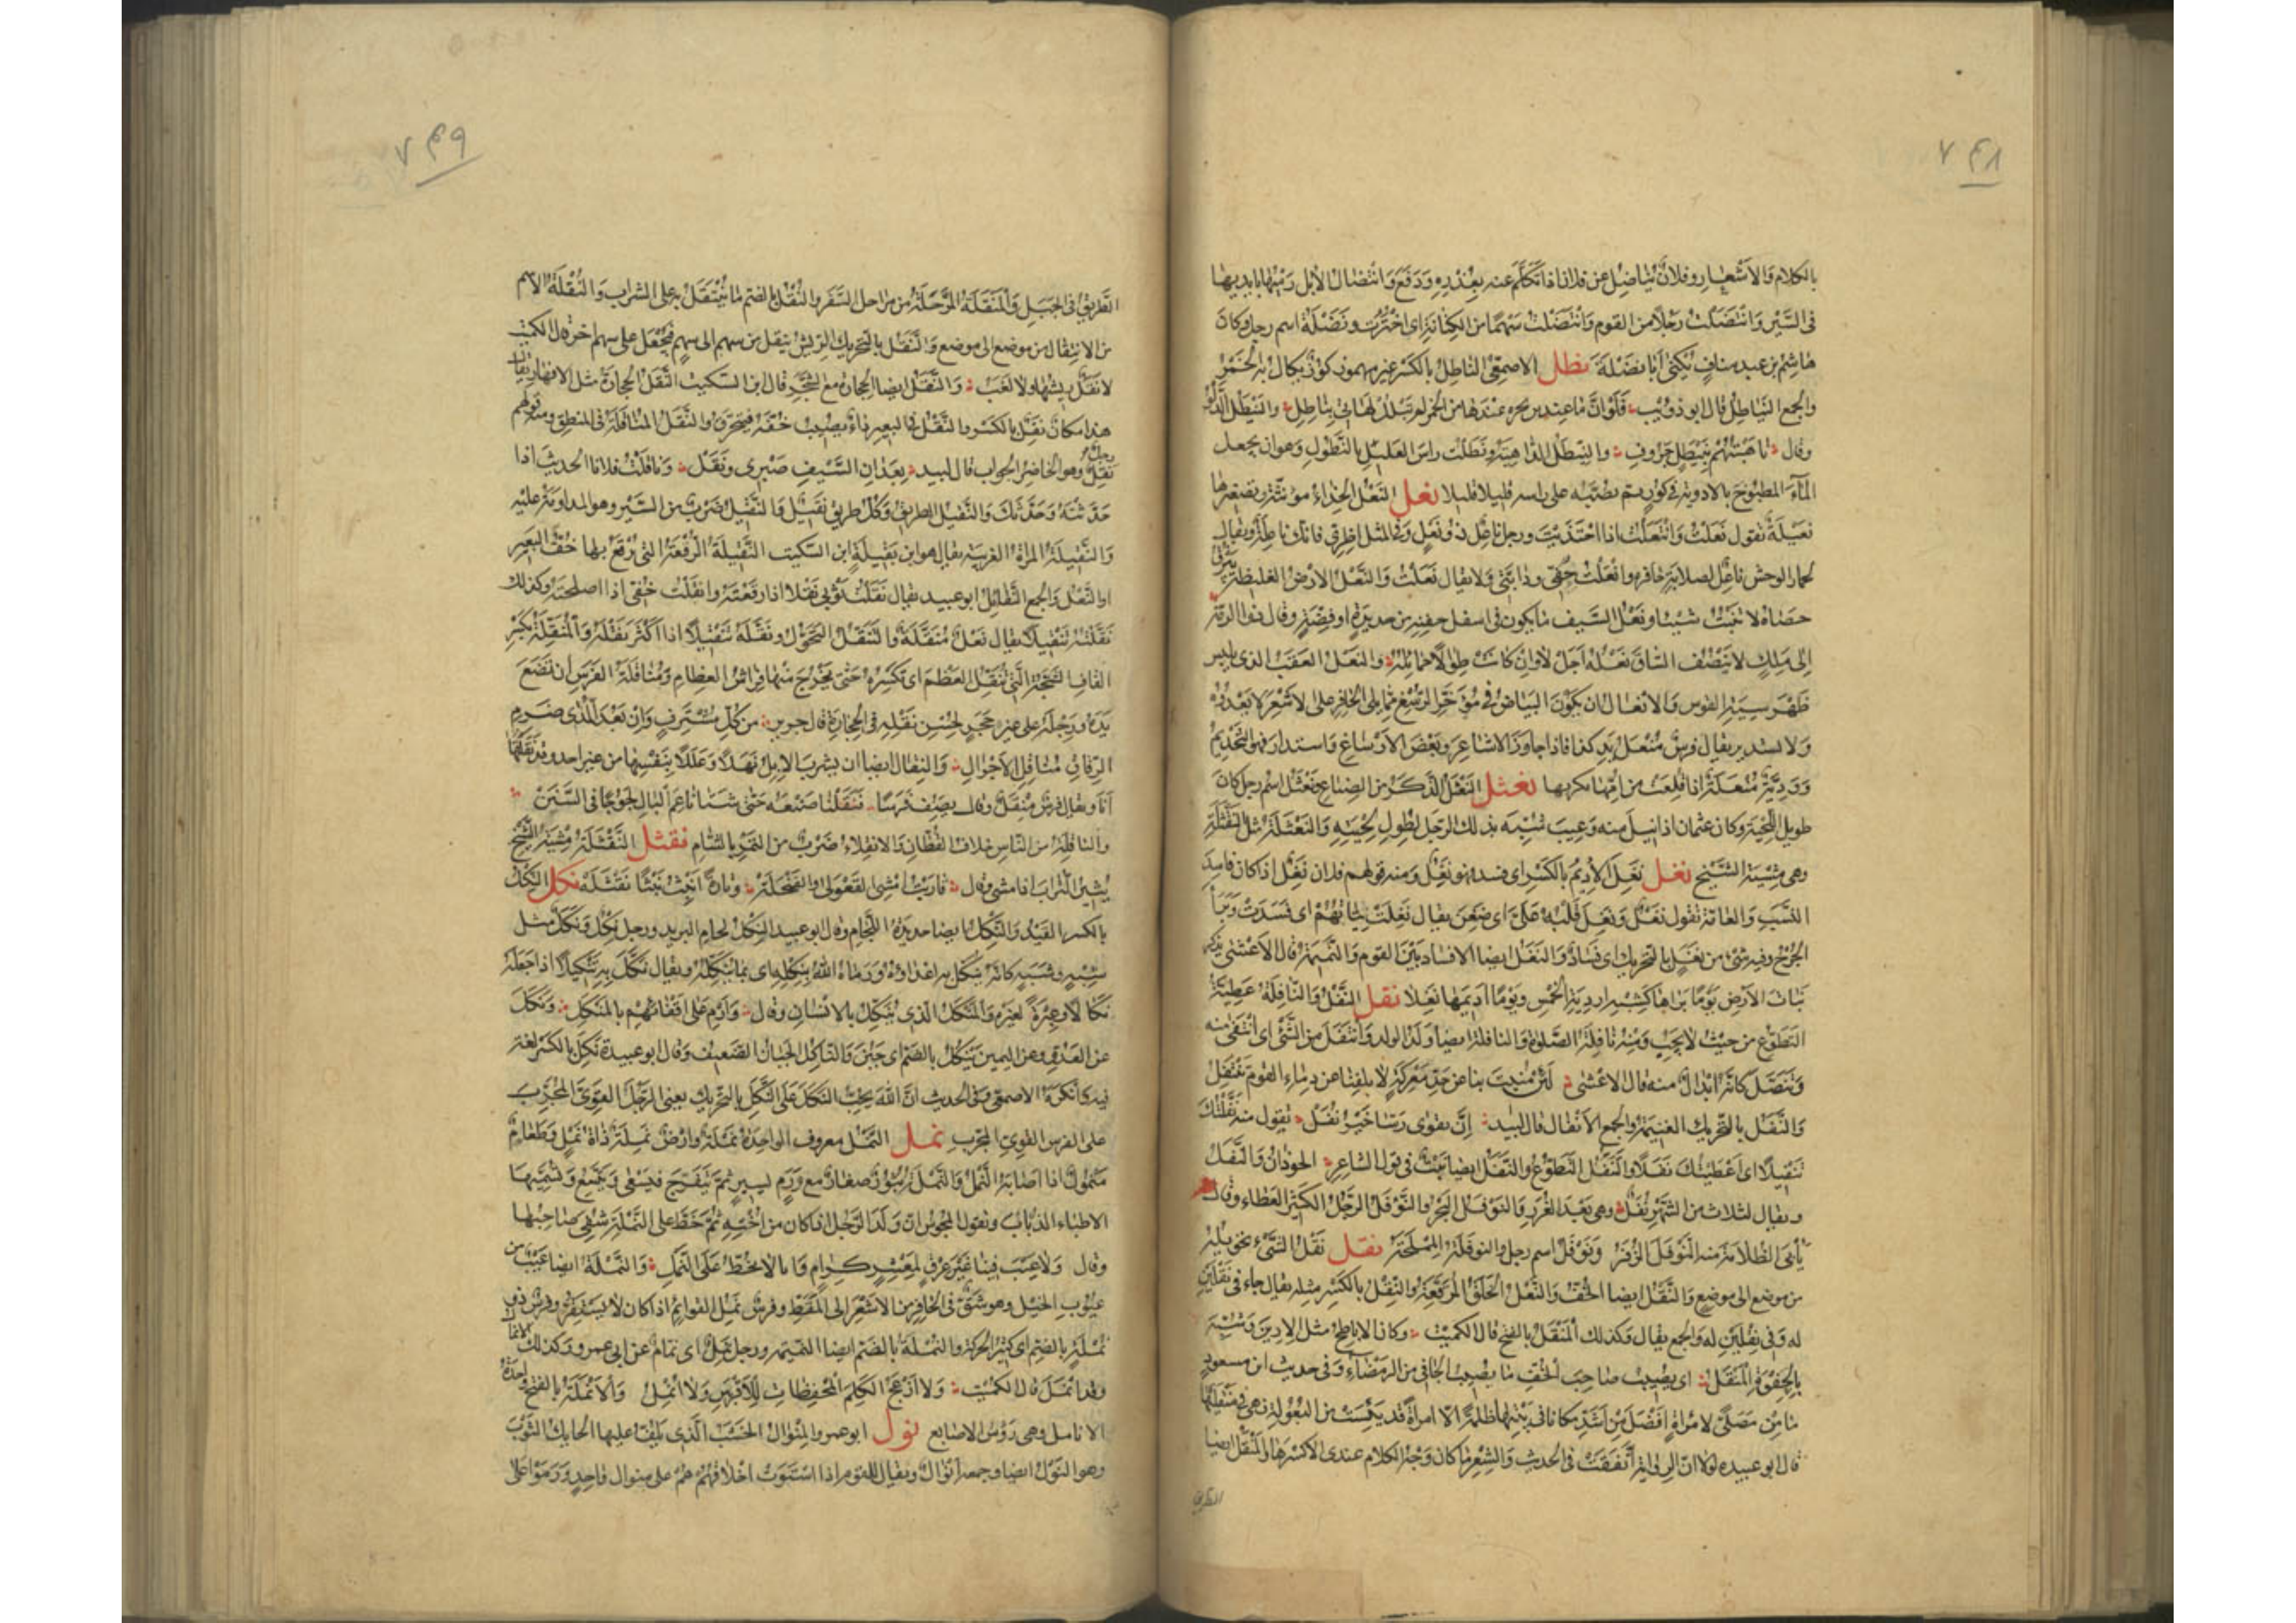 ٧٤٨
بالكلام والاشعار وفلان يناضل عن فلان اذا تكلم عنه بعذره ودفع وانتضال الابل رميها بايديها
فى السير وانتضلت رجلا من القوم وانتضلت سهما من الكنانة اى اخترت ونضلة اسم رجل وكان
هاشم بن عبد مناف يكنى ابا نضلة نطل الاصمعى الناطل بالكسر غير مهموز كوز يكال به الخمر
والجمع النياطل قال ابو ذويب فلو ان ما عند ابن بجرة عندها من الخمر لم تبلل لهاتى بناطل والنيطل الدلو
وقال ناهبتهم بنيطل جروف والنيطل الداهية ونطلت راس العليل بالنطول وهو ان يجعل
الماء المطبوخ بالادوية فى كوز ثم تصبه على راسه قليلا قليلا نعل النعل الحذاء مؤنثة وتصغيرها
نعيلة تقول نعلت وانتعلت اذا احتذيت ورجل ناعل ذو نعل وفى المثل اطرى فانك ناعلة ويقال
لحمار الوحش ناعل لصلابة حافره وانعلت خفى ودابتى ولا يقال نعلت والنعل الارض الغليظة يبرق
حصاه لا تنبت شيئا ونعل السيف ما يكون فى اسفل جفنه من حديدة او فضة وقال ذو الرمة
الى ملك لا ينصف الساق نعله اجل لا وان كانت طوالا حمائله والنعل العقب الذى يلبس
ظهر سية القوس والانعال ان يكون البياض فى مؤخر الرسغ مما يلى الحافر على الاشعر لا يعدوه
ولا يستدير يقال فرس منعل يد كذا فاذا جاوز الاشاعر وبعض الارساغ واستدار فهو التخديم
وودية منعلة اذا قلعت من امها بكربها نعثل النعثل الذكر من الضباع ونعثل اسم رجل كان
طويل اللحية وكان عثمان اذا نيل منه وعيب شبه بذلك الرجل لطول لحيته والنعثلة مثل النقثلة
وهى مشية الشيخ نغل نغل الاديم بالكسر اى فسد فهو نغل ومنه قولهم فلان نغل اذا كان فاسد
النسب والعامة تقول نغل ونغل قلبه على اى ضغن يقال نغلت نياتهم اى فسدت وبرأ
الجرح وفيه شئ من نغل بالتحريك اى فساد والنغل ايضا الافساد بين القوم والنميمة قال الاعشى يذكر
نبات الارض يوما تراها كشبه اردية الخمس ويوما اديمها نغلا نفل النفل والنافلة عطية
التطوع من حيث لا يجب ومنه نافلة الصلوة والنافلة ايضا ولد الولد وانتفل من الشئ اى انتفى منه
وتنصل كانه ابدال منه قال الاعشى لئن منيت بنا عن جد معركة لا تلفنا عن دماء القوم ننتفل
والنفل بالتحريك الغنيمة والجمع الانفال قال لبيد ان تقوى ربنا خير نفل تقول منه نفلتك
تنفيلا اى اعطيتك نفلا والتنفل التطوع والنفل ايضا نبت فى قول الشاعر الحوذان والنفل
ويقال لثلاث من الشهر نفل وهى بعد الغرر والنوفل البحر والنوفل الرجل الكثير العطاء وقال
يأبى الظلامة منه النوفل الزفر ونوفل اسم رجل والنوفلة المملحة نقل نقل الشئ تحويله
من موضع الى موضع والنقل ايضا الخف والنعل الخلق المرقعة والنقل بالكسر مثله يقال جاء فى نقلين
له وفى نقلين له والجمع يقال وكذلك المنقل بالفتح قال الكميت وكان الاباطح مثل الارين وشبه
بالحفوة المنقل اى يصيب صاحب الخف ما يصيب الحافى من الرمضاء وفى حديث ابن مسعود
ما من مصلى لامرأة افضل من اشد مكانا فى بيتها ظلمة الا امرأة قد يئست من البعولة فهى فى منقلها
قال ابو عبيدة لولا ان الرواية اتفقت فى الحديث والشعر ما كان وجه الكلام عندى الا كسرها والمنقل ايضا
الطريق
٧٤٩
الطريق فى الجبل والمنقلة المرحلة من مراحل السفر والنقل بالضم ما ينتقل به على الشراب والنقلة الاسم
من الانتقال من موضع الى موضع والنقل بالتحريك الريش ينقل من سهم الى سهم فيجعل على سهم اخر قال الكميت
لا نقل ريشها ولا لغب والنقل ايضا الحجارة مع الشجر قال ابن السكيت النقل الحجارة مثل الافهار يقال
هذا مكان نقل بالكسر والنقل فى البعير داء يصيب خفه فيتخرق والنقل المناقلة فى المنطق ومنه قولهم
رجل نقل وهو الحاضر الجواب قال لبيد بعذان السيف صبرى ونقل وناقلت فلانا الحديث اذا
حدثته وحدثك والنقيل الطريق وكل طريق نقيل والنقيل ضرب من السير وهو المداومة عليه
والنقيلة المراة الغريبة يقال هو ابن نقيلة ابن السكيت النقيلة الرقعة التى يرقع بها خف البعير
او النعل والجمع النقائل ابو عبيد يقال نقلت ثوبى نقلا اذا رقعته وانقلت خفى اذا اصلحته وكذلك
نقلته تنقيلا يقال نعل منقلة والتنقل التحول ونقله تنقيلا اذا اكثر نقله والمنقلة بكسر
القاف الشجة التى تنقل العظم اى تكسره حتى يخرج منها فراش العظام ومناقلة الفرس ان تضع
يده ورجله على غير حجر لحسن نقله فى الحجارة قال جرير من كل مشترف وان بعد المدى ضرم
الرقاق مناقل الاجرال والنقال ايضا ان يشرب الابل نهلا وعللا بنفسها من غير احد وقد نقلتها
انا ويقال فرس منقل وقال يصف فرسا فنقلنا صنعه حتى شتا ناعم البال لجوجا فى السنن
والناقلة من الناس خلاف القطان والانقلاء ضرب من التمر بالشام نقثل النقثلة مشية الشيخ
يثير التراب اذا مشى وقال قاربت امشى القعولى والفنجلة وتارة انبث نبثا نقثله نكل النكل
بالكسر القيد والنكل ايضا حديدة اللجام وقال ابو عبيد النكل لجام البريد ورجل نكل ونكل مثل
شبه وشبه كانه ينكل به اعداؤه ورماه الله بنكلة اى بما ينكله ويقال نكل به تنكيلا اذا جعله
نكالا وعبرة لغيره والمنكل الذى ينكل بالانسان وقال وارم على اقفائهم بالمنكل ونكل
عن العدو وعن اليمين ينكل بالضم اى جبن والناكل الجبان الضعيف وقال ابو عبيدة نكل بالكسر لغة
فيه وانكره الاصمعى وفى الحديث ان الله يحب النكل على النكل بالتحريك يعنى الرجل القوى المجرب
على الفرس القوى المجرب نمل النمل معروف الواحدة نملة وارض نملة ذات نمل وطعام
منمول اذا اصابه النمل والنملة بثور صغار مع ورم يسير ثم يتقرح فيسعى ويتسع ويسميها
الاطباء الذباب وتقول المجوس ان ولد الرجل اذا كان من اخته ثم خط على النملة شفى صاحبها
وقال ولا عيب فينا غير عرق لمعشر كرام وانا لا نخط على النمل والنملة ايضا عيب من
عيوب الخيل وهو شق فى الحافر من الاشعر الى المقط وفرس نمل القوائم اذا كان لا يستقر وفرس ذو
نملة بالضم اى كثير الحركة والنملة بالضم ايضا النميمة ورجل نمل اى نمام عن ابى عمرو وكذلك الانمال
وقد انمل قال الكميت ولا ازعج الكلم المحفظات للاقربين ولا انمل والانملة بالفتح واحدة
الانامل وهى رؤس الاصابع نول ابو عمرو المنوال الخشب الذى يلف عليها الحايك الثوب
وهو النول ايضا وجمعه انوال ويقال للقوم اذا استوت اخلاقهم هم على منوال واحد ورموا على